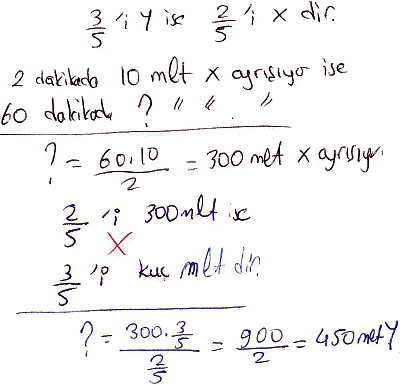 3/5 'i Y ise 2/5 'i X dir.
2 dakikada 10 mlt X ayrışıyor ise
60 dakikada ? " " "
? = 60.10/2 = 300 mlt X ayrışıyor.
2/5 'i 300 mlt ise
3/5 'i kaç mlt dir.
? = 300. 3/5 / 2/5 = 900/2 = 450 mlt Y